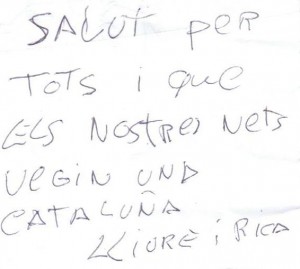 SALUT per
TOTS i que
ELS NOSTRES NETS
VEGIN UNA
CATALUÑA
LLIURE i RICA